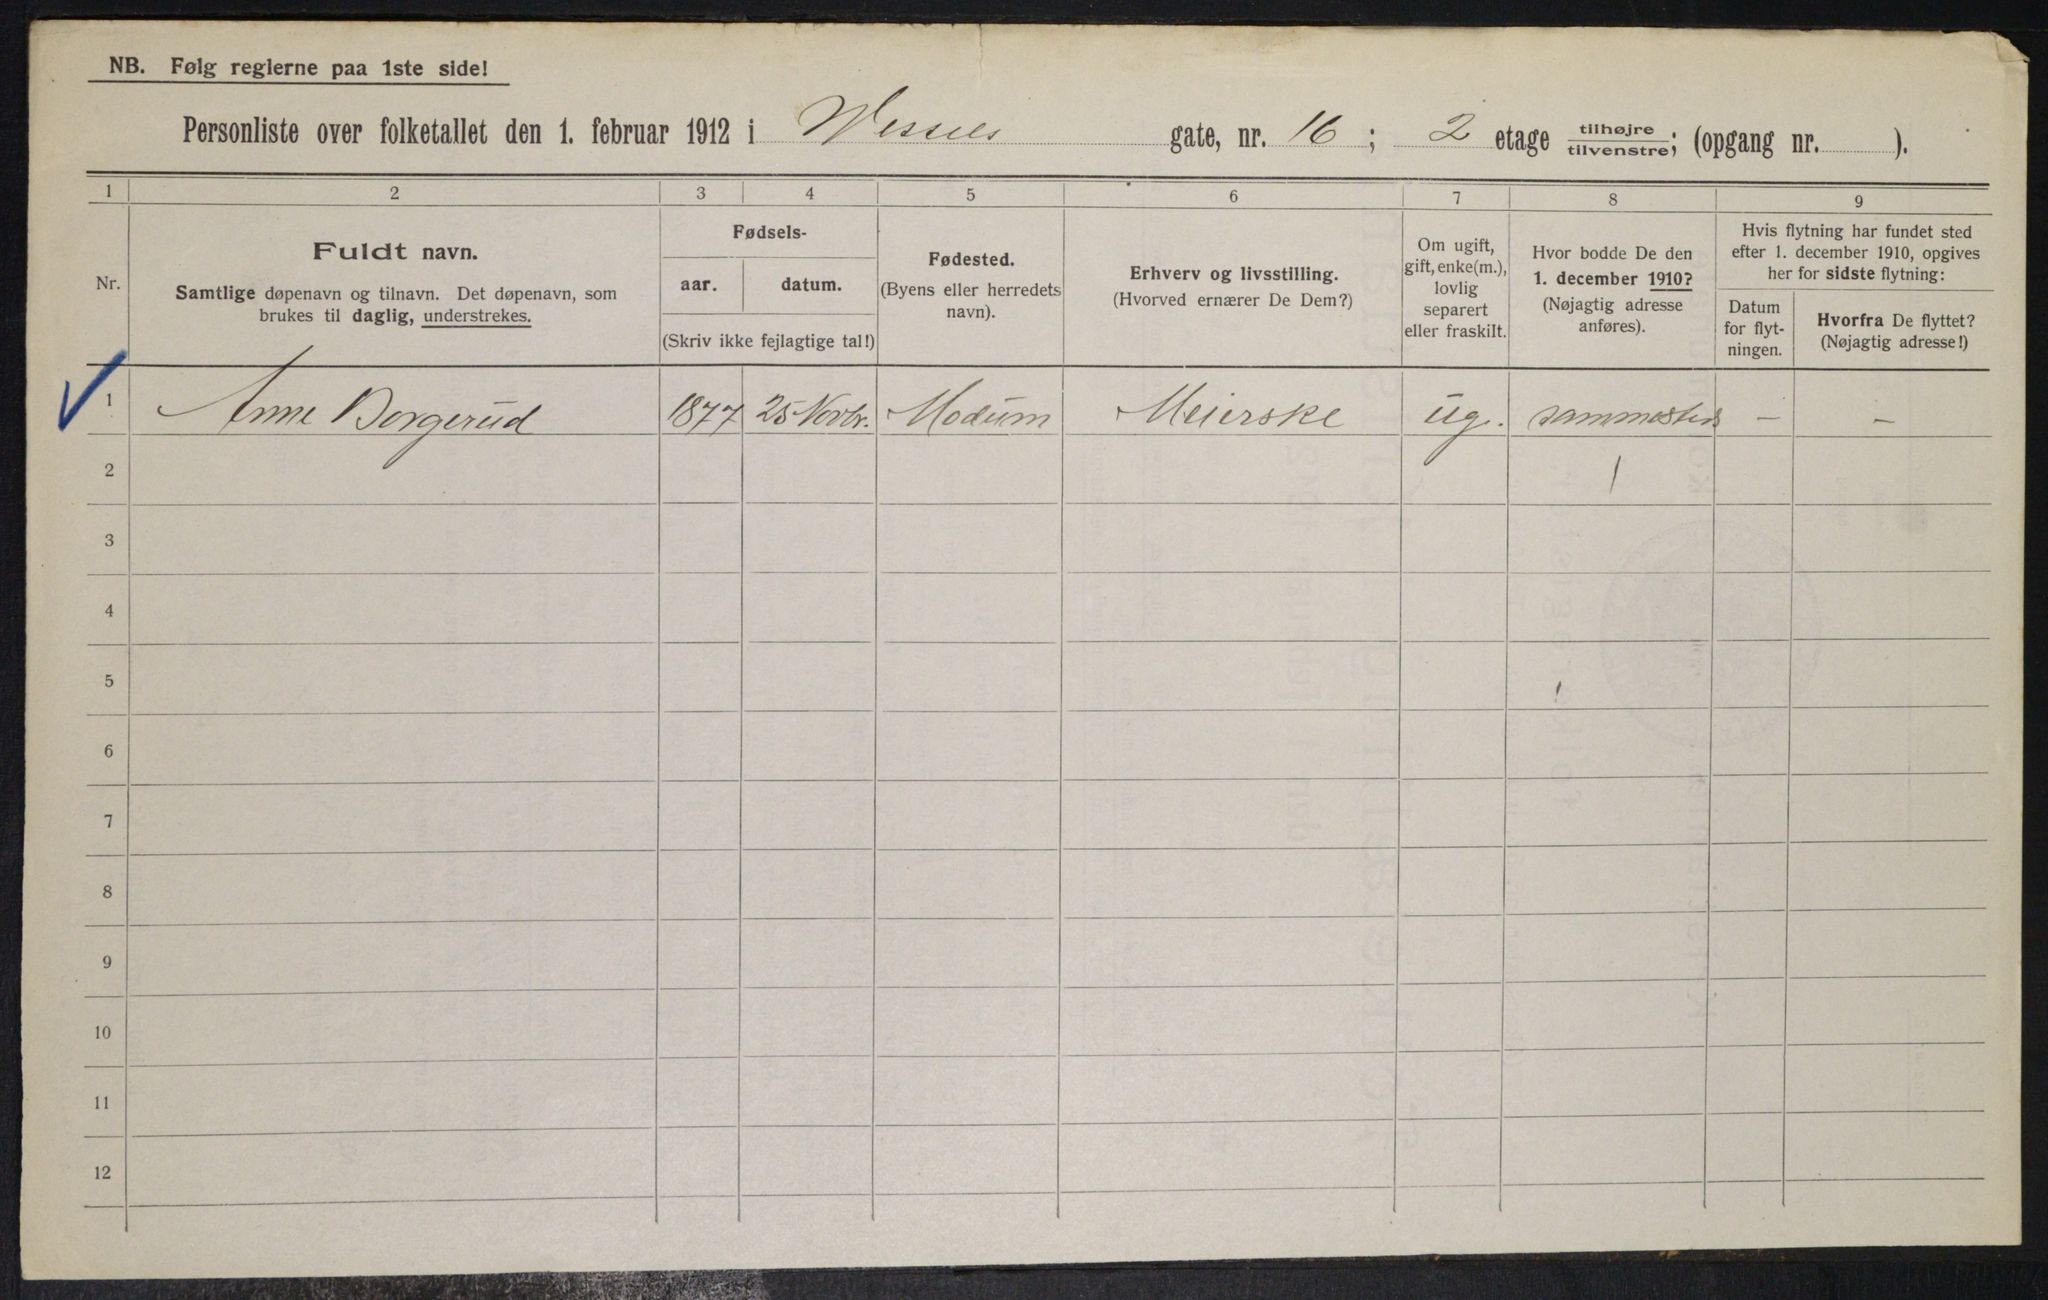 NB. Følg reglerne paa 1ste side!
Personliste over folketallet den 1. februar 1912 i Wessels gate, nr. 16; 2 etage tilhøjre/tilvenstre; (opgang nr. ).
1 2 3 4 5 6 7 8 9
Nr.
Fuldt navn.
Samtlige døpenavn og tilnavn. Det døpenavn, som
brukes til daglig, understrekes.
Fødsels-
aar. datum.
(Skriv ikke fejlagtige tal!)
Fødested.
(Byens eller herredets
navn).
Erhverv og livsstilling.
(Hvorved ernærer De Dem?)
Om ugift,
gift, enke(m.),
lovlig
separert
eller fraskilt.
Hvor bodde De den
1. december 1910?
(Nøjagtig adresse
anføres).
Hvis flytning har fundet sted
efter 1. december 1910, opgives
her for sidste flytning:
Datum
for flyt-
ningen.
Hvorfra De flyttet?
(Nøjagtig adresse!)
1 Anne Borgerud 1877 25 Novbr. Modum Meierske ug. sammesteds - -
2
3
4
5
6
7
8
9
10
11
12